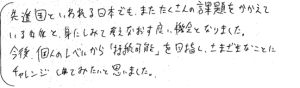 先進国といわれる日本でも、まだたくさんの課題をかかえて
いる事を、身にしみて考えなおす良い機会となりました。
今後、個人のレベルから「持続可能」を目指し、さまざまなことに
チャレンジしてみたいと思いました。